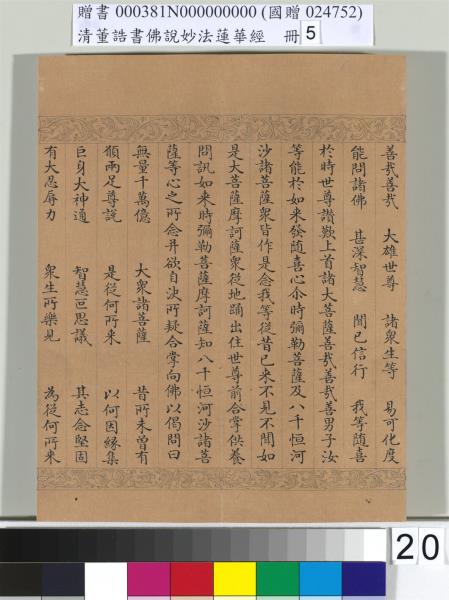 贈書 000381N000000000 (國贈 024752)
清董誥書佛說妙法蓮華經 冊 5
善哉善哉 大雄世尊 諸衆生等 易可化度
能問諸佛 甚深智慧 聞已信行 我等隨喜
於時世尊讚歎上首諸大菩薩善哉善哉善男子汝
等能於如来發隨喜心尒時彌勒菩薩及八千恒河
沙諸菩薩衆皆作是念我等從昔已来不見不聞如
是大菩薩摩訶薩衆從地踊出住世尊前合掌供養
問訊如来時彌勒菩薩摩訶薩知八千恒河沙諸菩
薩等心之所念并欲自決所疑合掌向佛以偈問曰
無量千萬億 大衆諸菩薩 昔所未曾有
願兩足尊説 是從何所来 以何因緣集
巨身大神通 智慧叵思議 其志念堅固
有大忍辱力 衆生所樂見 為從何所来
20